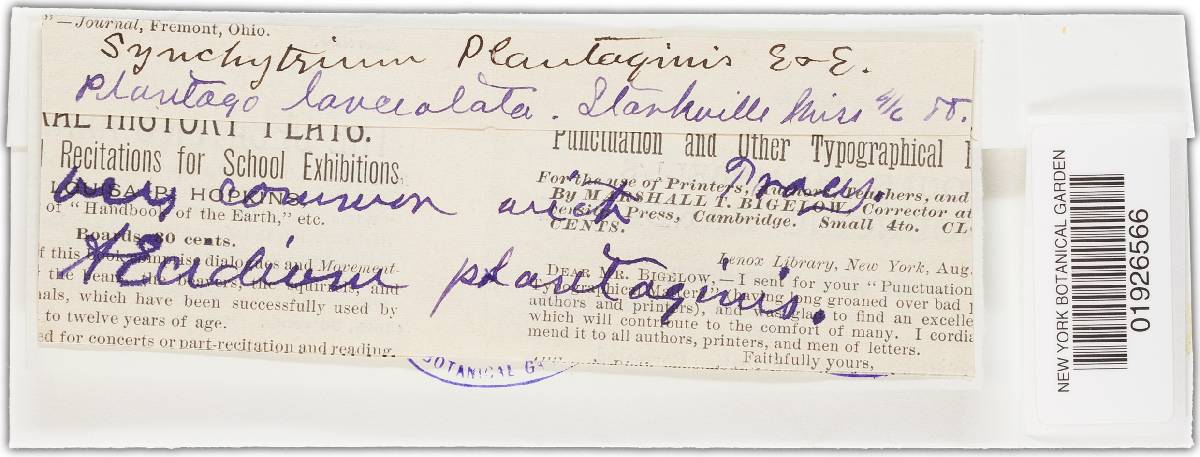 " —Journal, Fremont, Ohio.
Synchytrium Plantaginis E & E.
Plantago lanceolata. Starkville Miss
RAL HISTORY PLAYS.
Recitations for School Exhibitions,
LOUISA P. HOPKINS
of "Handbook of the Earth," etc.
Boards, 30 cents.
f this book comprise dialogues and Movement-
the bears, the beavers, the squirrels, and
als, which have been successfully used by
to twelve years of age.
ed for concerts or part-recitation and reading.
Punctuation and Other Typographical
For the use of Printers, Authors, Teachers, and
By MARSHALL T. BIGELOW, Corrector at
versity Press, Cambridge. Small 4to. CL
CENTS.
Lenox Library, New York, Aug.
DEAR MR. BIGELOW,—I sent for your "Punctuation
Typographical Matters" (having long groaned over bad
authors and printers), and was glad to find an excelle
which will contribute to the comfort of many. I cordia
mend it to all authors, printers, and men of letters.
Faithfully yours,
Tracy.
very common with
Æcidium plantaginis.
BOTANICAL GA
NEW YORK BOTANICAL GARDEN
01926566